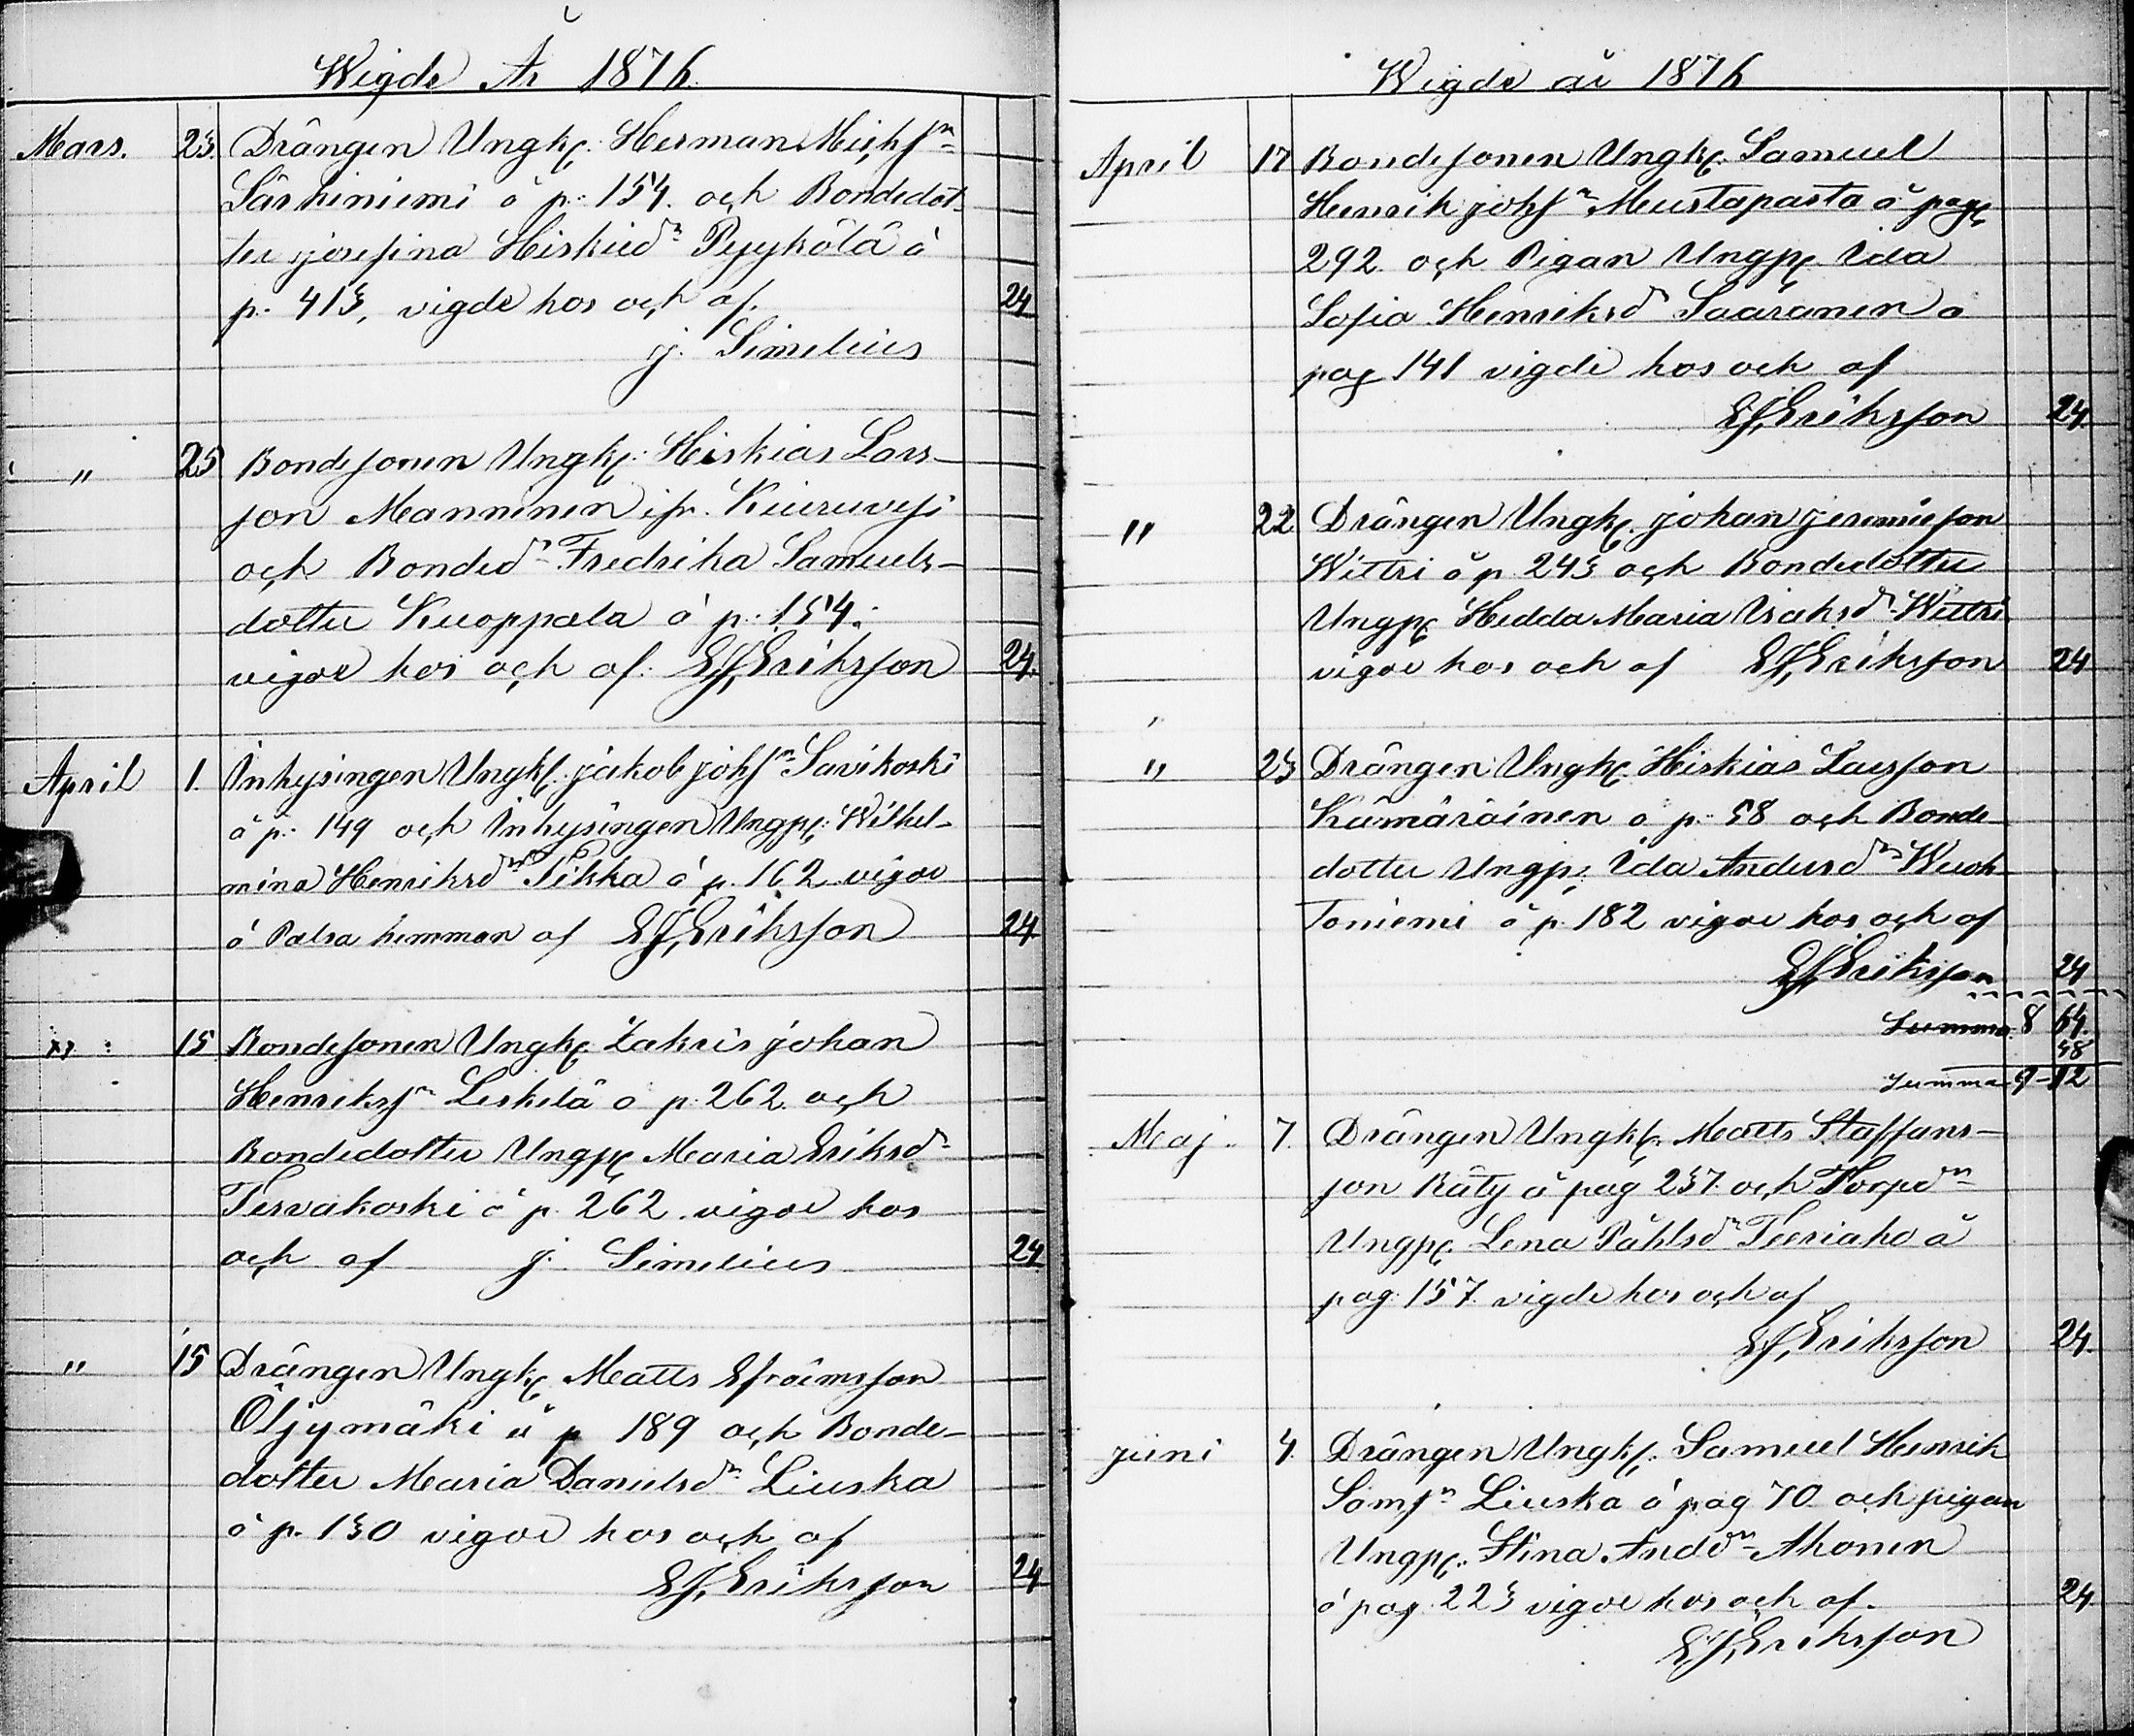 Wigde År 1876.
Mars. 23. Drängen Ungk: Herman Michsn
Särkiniemi å p: 154. och Bondedot-
ter Josefina Hiskiedr Pyykölä å
p. 413, vigde hos och af. 24
J. Simelius
" 25 Bondesonen Ungk: Hiskias Lars-
son Manninen ifr. Kiuruvesi
och Bonded:r Fredrika Samuels-
dotter Kuoppala å p: 154.
vigde hos och af. Ef, Eriksson 24.
April 1. Inhysingen Ungk: Jakob Johsn Savikoski
å p: 149 och Inhysingen Ungp: Wilhel-
mina Henriksdr Tikka å p. 162. vigde
å Palsa hemman af Ef, Eriksson 24
" : 15 Bondesonen Ungk: Zakris Johan
Henrikssn Leskelä å p. 262. och
Bondedotter Ungp: Maria Eriksdr
Tervakoski å p. 262. vigde hos
och af J. Simelius 24.
" 15 Drängen Ungk: Matts Efraimsson
Öljymäki å p 189 och Bonde-
dotter Maria Danielsdr Liuska
å p. 130 vigde hos och af
Ef, Eriksson 24
Wigde år 1876
April 17 Bondesonen Ungk: Samuel
Henrik Johsn Mustaparta å pag:
292. och Pigan Ungp: Ida
Sofia Henriksdr Saaranen å
pag 141 vigde hos och af
Ef, Eriksson 24.
" 22. Drängen Ungk: Johan Jeremieson
Wittri å p. 243 och Bondedotter
Ungp: Hedda Maria Isaksdr Wittri
vigde hos och af Ef, Eriksson 24
" 23 Drängen Ungk: Hiskias Larsson
Kämäräinen å p: 58 och Bonde
dotter Ungp: Ida Andersdr Wuok
Toniemi å p. 182 vigde hos och af
Ef, Eriksson 24
Summa 8 64.
48
Summa 9-12
Maj. 7. Drängen Ungk: Matts Staffans-
son Räty å pag 237. och Torpdr
Ungp: Lena Påhlsdr Teeriaho å
pag: 157. vigde hos och af
Ef, Eriksson 24.
Juni 4. Drängen Ungk: Samuel Henrik
Samsn Liuska å pag 70 och pigan
Ungp: Stina Anddr Ahonen
å pag. 223 vigde hos och af. 24.
Ef, Eriksson